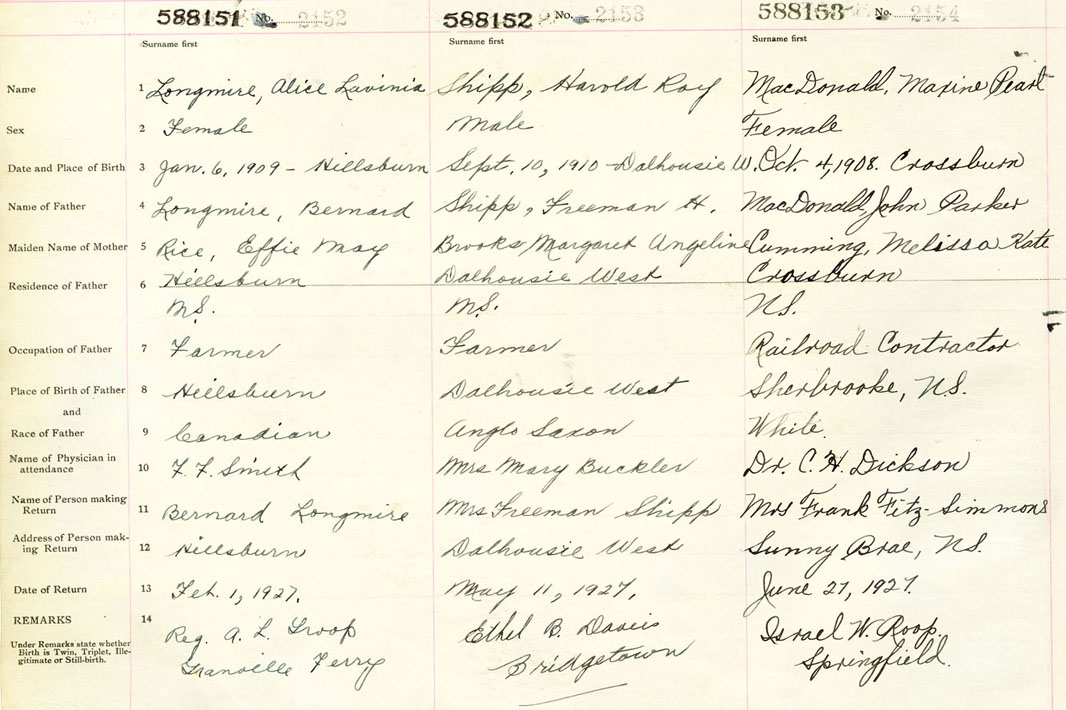 588151 No. 2152 588152 No. 2153 588153 No. 2154
Surname first Surname first Surname first
Name 1 Longmire, Alice Lavinia Shipp, Harold Roy MacDonald, Maxine Pearl
Sex 2 Female Male Female
Date and Place of Birth 3 Jan. 6, 1909 - Hillsburn Sept. 10, 1910 - Dalhousie W. Oct. 4, 1908. Crossburn
Name of Father 4 Longmire, Bernard Shipp, Freeman H. MacDonald, John Parker
Maiden Name of Mother 5 Rice, Effie May Brooks, Margaret Angeline Cumming, Melissa Kate
Residence of Father 6 Hillsburn Dalhousie West Crossburn
N.S. N.S. N.S.
Occupation of Father 7 Farmer Farmer Railroad Contractor
Place of Birth of Father 8 Hillsburn Dalhousie West Sherbrooke, N.S.
and
Race of Father 9 Canadian Anglo Saxon White.
Name of Physician in
attendance 10 F. F. Smith Mrs Mary Buckler Dr. C. H. Dickson
Name of Person making
Return 11 Bernard Longmire Mrs Freeman Shipp Mrs Frank Fitz-Simmons
Address of Person mak-
ing Return 12 Hillsburn Dalhousie West Sunny Brae, N.S.
Date of Return 13 Feb. 1, 1927. May 11, 1927. June 27, 1927.
REMARKS 14
Under Remarks state whether
Birth is Twin, Triplet, Ille-
gitimate or Still-birth.
Reg. A. L. Troop Ethel B. Davis Israel W. Roop.
Granville Ferry Bridgetown Springfield.